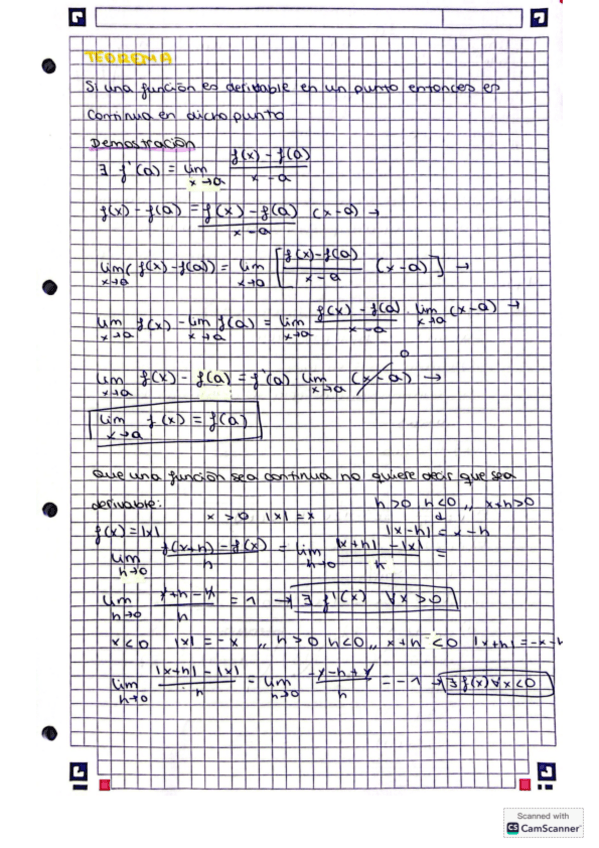 TEOREMA
Si una función es derivable en un punto entonces es
continua en dicho punto
Demostración
∃ f'(a) = lim x→a (f(x) - f(a))/(x - a)
f(x) - f(a) = (f(x) - f(a))/(x - a) (x - a) →
lim x→a (f(x) - f(a)) = lim x→a [(f(x) - f(a))/(x - a) (x - a)] →
lim x→a f(x) - lim x→a f(a) = lim x→a (f(x) - f(a))/(x - a) · lim x→a (x - a) →
lim x→a f(x) - f(a) = f'(a) lim x→a (x - a) 0 →
lim x→a f(x) = f(a)
Que una función sea continua no quiere decir que sea
derivable:
x > 0 |x| = x
h > 0 h < 0 ,, x+h > 0
f(x) = |x|
|x-h| = x - h
lim h→0 (f(x+h) - f(x))/h = lim h→0 (|x+h| - |x|)/h =
lim h→0 (x + h - x)/h = 1 → ∃ f'(x) ∀x > 0
x < 0 |x| = -x ,, h > 0 h < 0 ,, x+h < 0 |x+h| = -x - h
lim h→0 (|x+h| - |x|)/h = lim h→0 (-x - h + x)/h = -1 → ∃ f(x) ∀x < 0
Scanned with
CS CamScanner